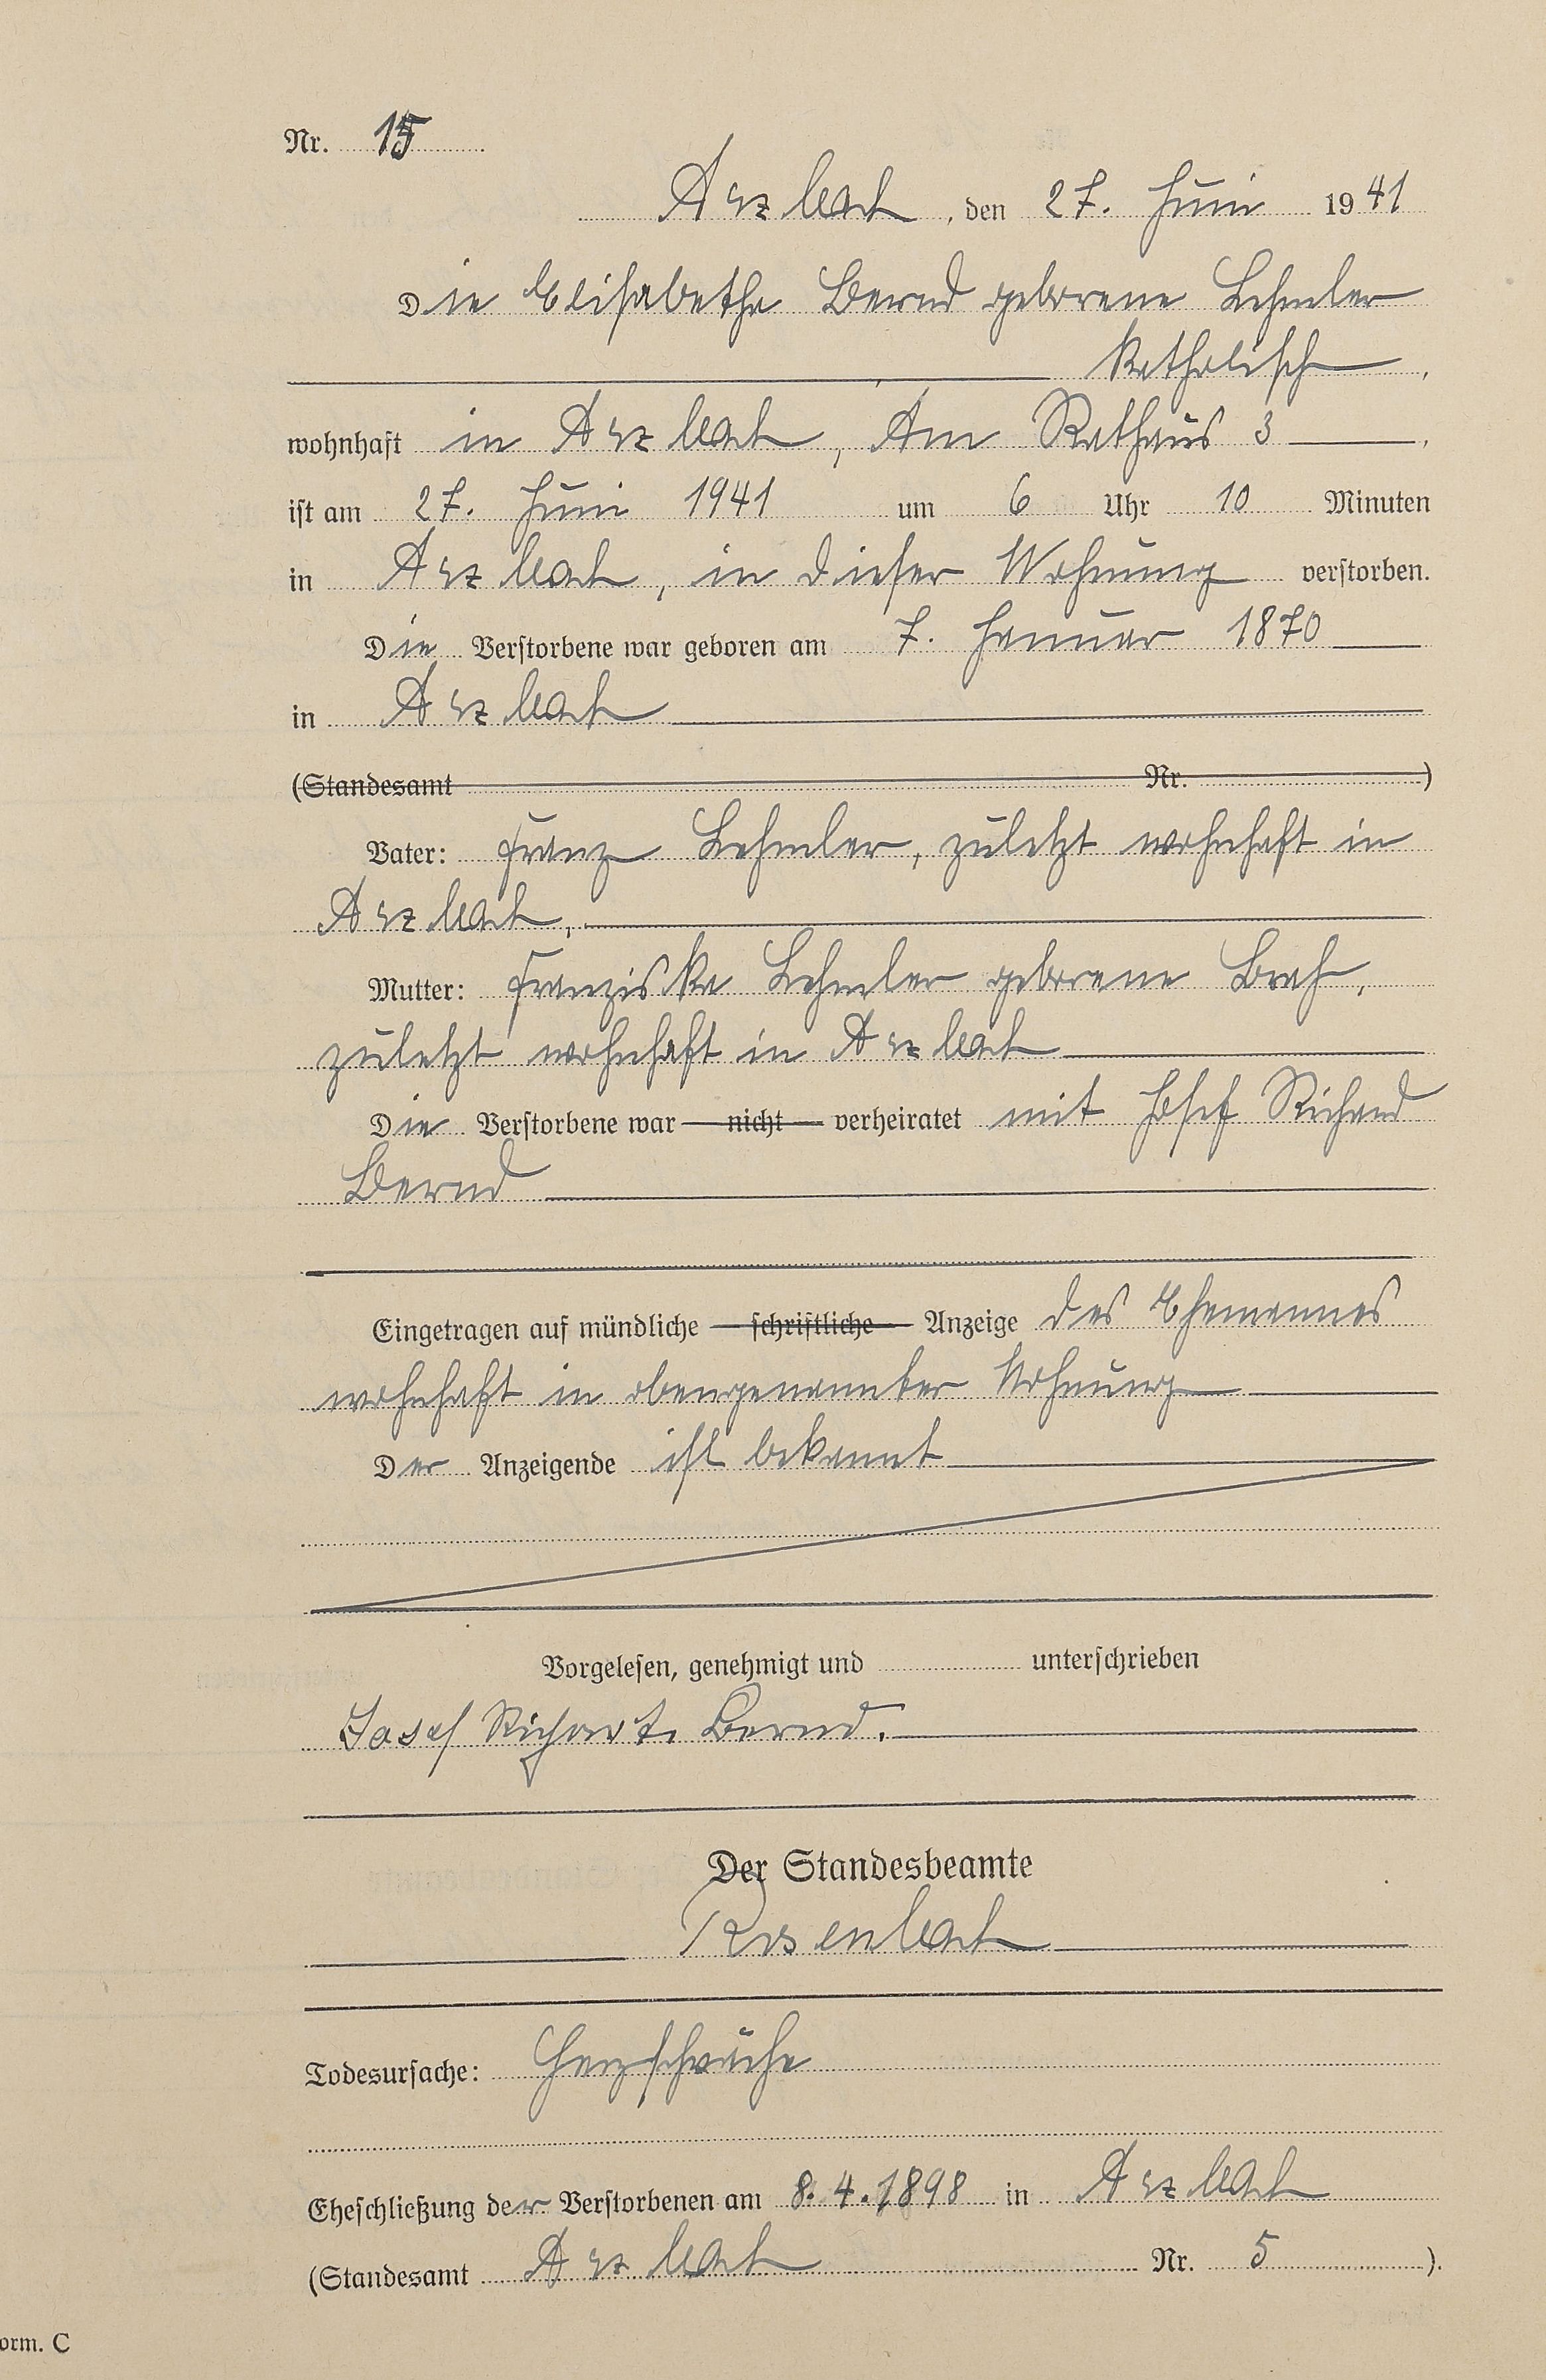 Nr. 15
Arzbach, den 27. Juni 1941
Die Elisabetha Bernd geborene Lehmler
katholisch,
wohnhaft in Arzbach, Am Rathaus 3,
ist am 27. Juni 1941 um 6 Uhr 10 Minuten
in Arzbach, in dieser Wohnung verstorben.
Die Verstorbene war geboren am 7. Januar 1870
in Arzbach
(Standesamt Nr. )
Vater: Franz Lehmler, zuletzt wohnhaft in
Arzbach,
Mutter: Franziska Lehmler geborene
zuletzt wohnhaft in Arzbach
Die Verstorbene war nicht verheiratet mit Josef Richard
Bernd
Eingetragen auf mündliche schriftliche Anzeige des Ehemannes
wohnhaft in obengenannter Wohnung
Der Anzeigende ist bekannt
Vorgelesen, genehmigt und unterschrieben
Josef Richart Bernd.
Der Standesbeamte
Rosenbach
Todesursache: Herzschwäche
Eheschließung der Verstorbenen am 8.4.1898 in Arzbach
(Standesamt Arzbach Nr. 5 ).
orm. C